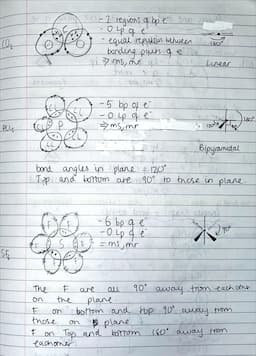 CO₂
- 2 regions of bp e⁻
- 0 lp of e⁻
- equal repulsion between
bonding pairs of e⁻
⇒ ms, mr
180°
Linear
- 5 bp of e⁻
- 0 lp of e⁻
⇒ ms, mr
Bipyramidal
bond angles in plane = 120°
Top and bottom are 90° to those in plane
SF₆
- 6 bp of e⁻
- 0 lp of e⁻
= ms, mr
90°
The F are all 90° away from each other
on the plane
F on bottom and top 90° away from
those on plane
F on Top and bottom 180° away from
eachother